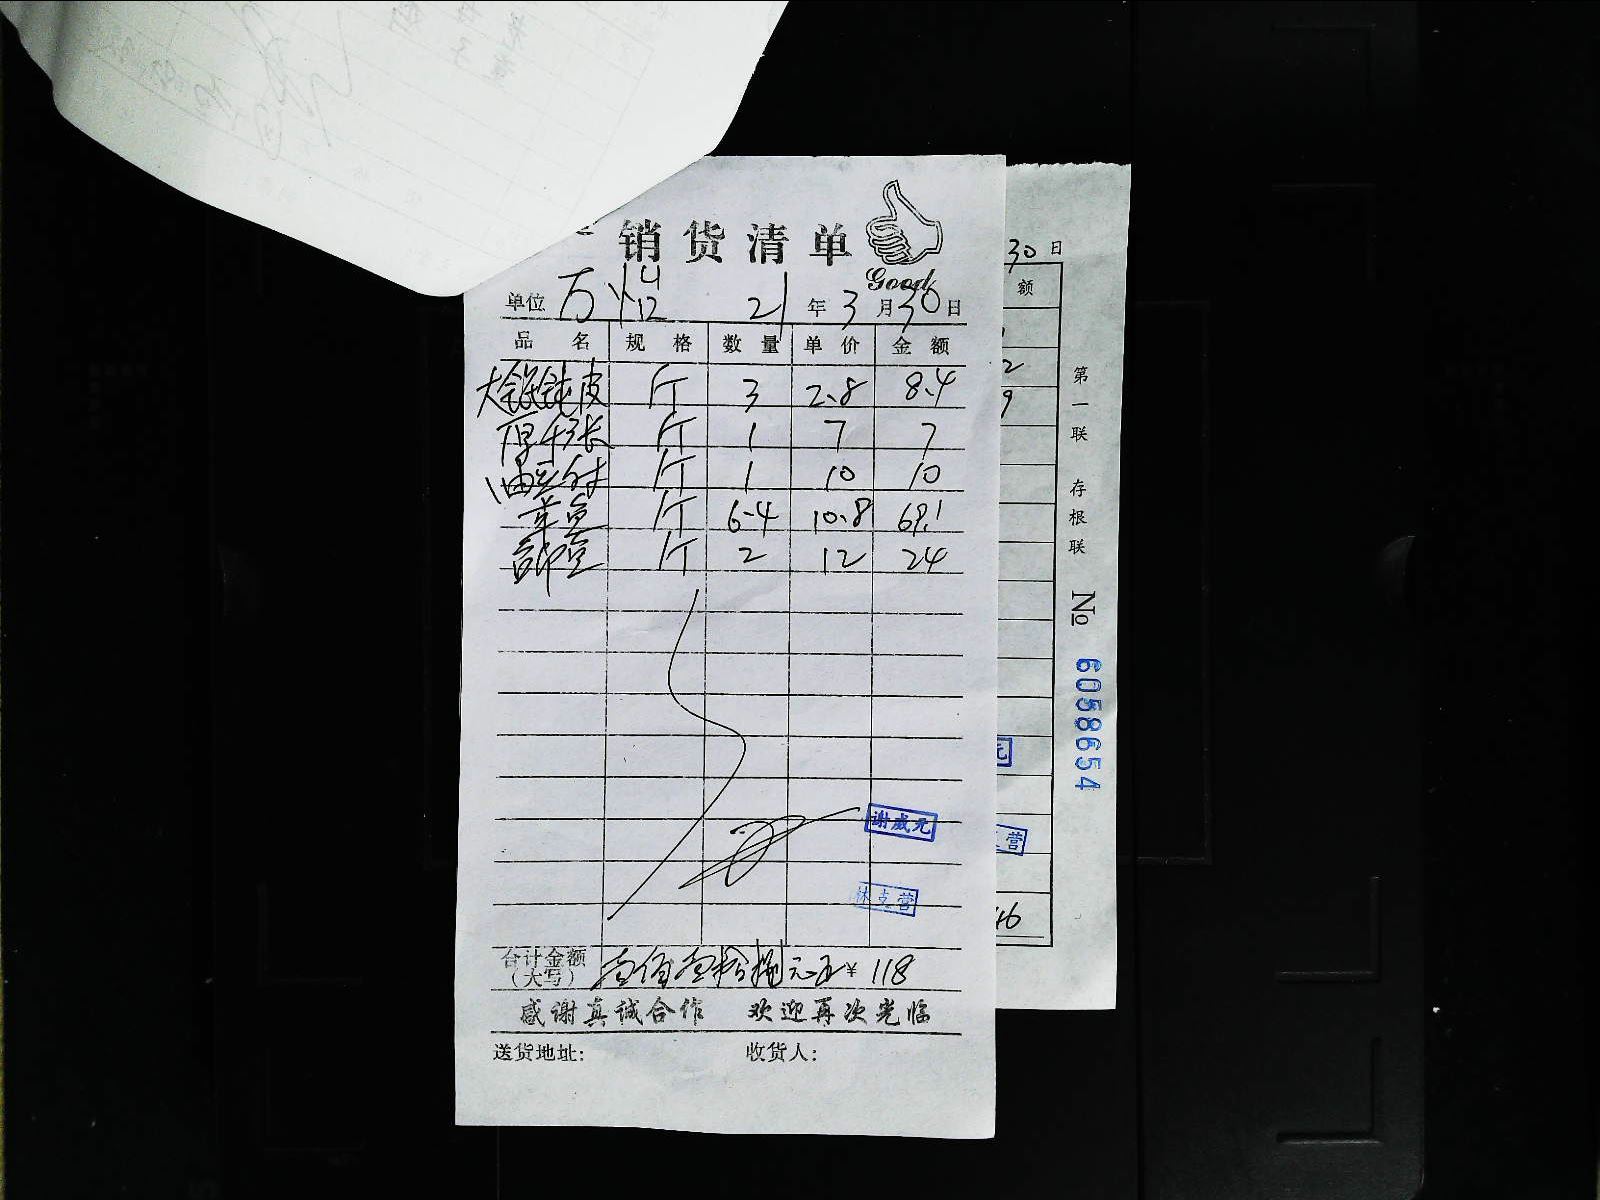 销货清单
Good
单位 万 21年3月30日
品名 规格 数量 单价 金额
大馄饨皮 斤 3 2.8 8.4
厚千张 斤 1 7 7
油豆付 斤 1 10 10
草鱼 斤 6.4 10.8 69.1
斤 2 12 24
谢威元
林支营
合计金额（大写） 壹佰壹拾捌元正 ¥ 118
感谢真诚合作 欢迎再次光临
送货地址： 收货人：
30日
额
2
9
元
支营
46
第一联 存根联
№ 6058654